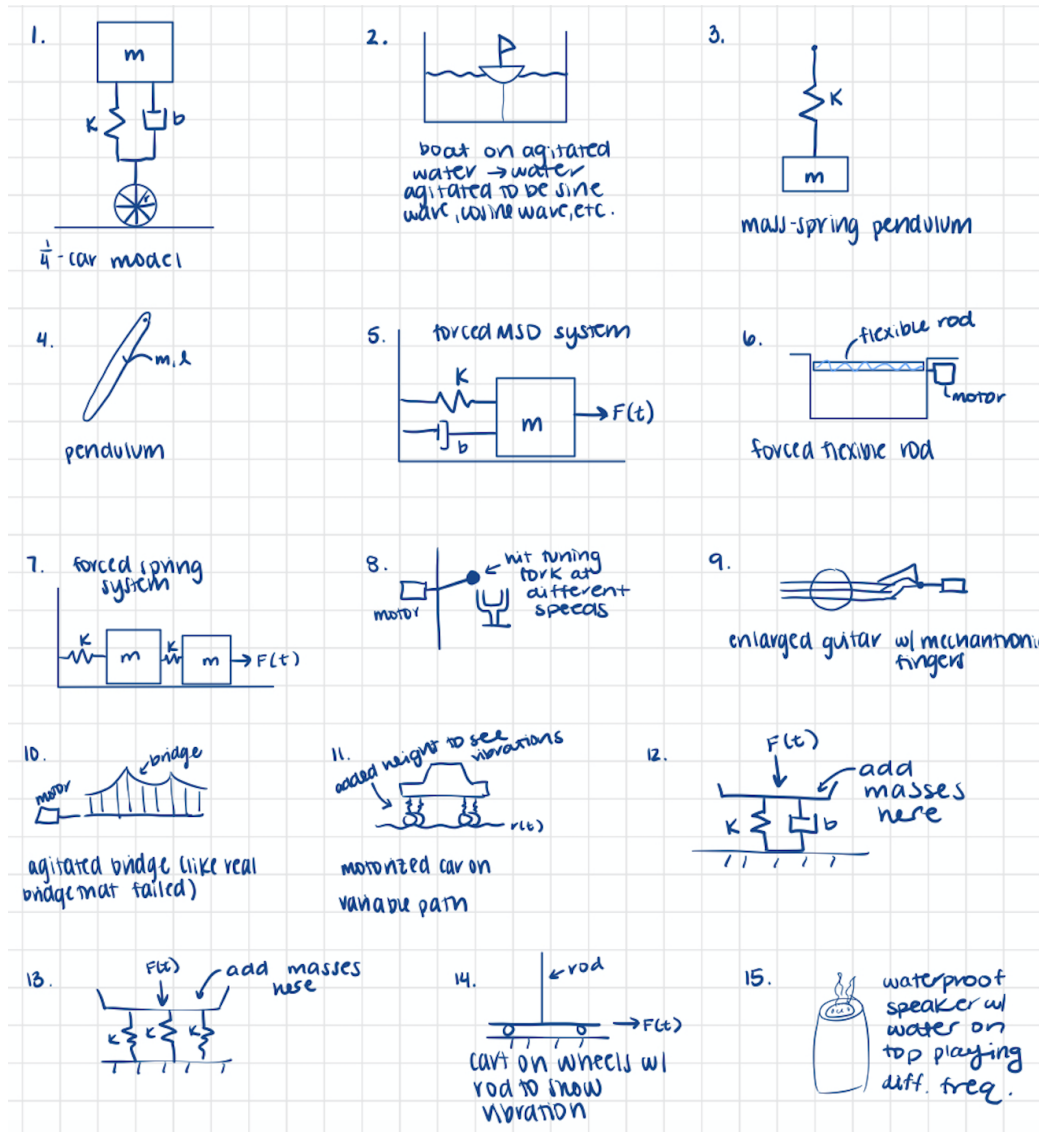 1.
m
K
b
r
1/4-car model
2.
boat on agitated
water → water
agitated to be sine
wave, cosine wave, etc.
3.
K
m
mass-spring pendulum
4.
m, l
pendulum
5.
forced MSD system
K
m
F(t)
b
6.
flexible rod
motor
forced flexible rod
7.
forced spring
system
K
m
K
m
F(t)
8.
hit tuning
fork at
different
speeds
motor
9.
enlarged guitar w/ mechantroni
fingers
10.
bridge
motor
agitated bridge (like real
bridge that failed)
11.
added height to see
vibrations
r(t)
motorized car on
variable path
12.
F(t)
add
masses
here
K
b
13.
F(t)
add masses
here
K
K
K
14.
rod
F(t)
cart on wheels w/
rod to show
vibration
15.
waterproof
speaker w/
water on
top playing
diff. freq.